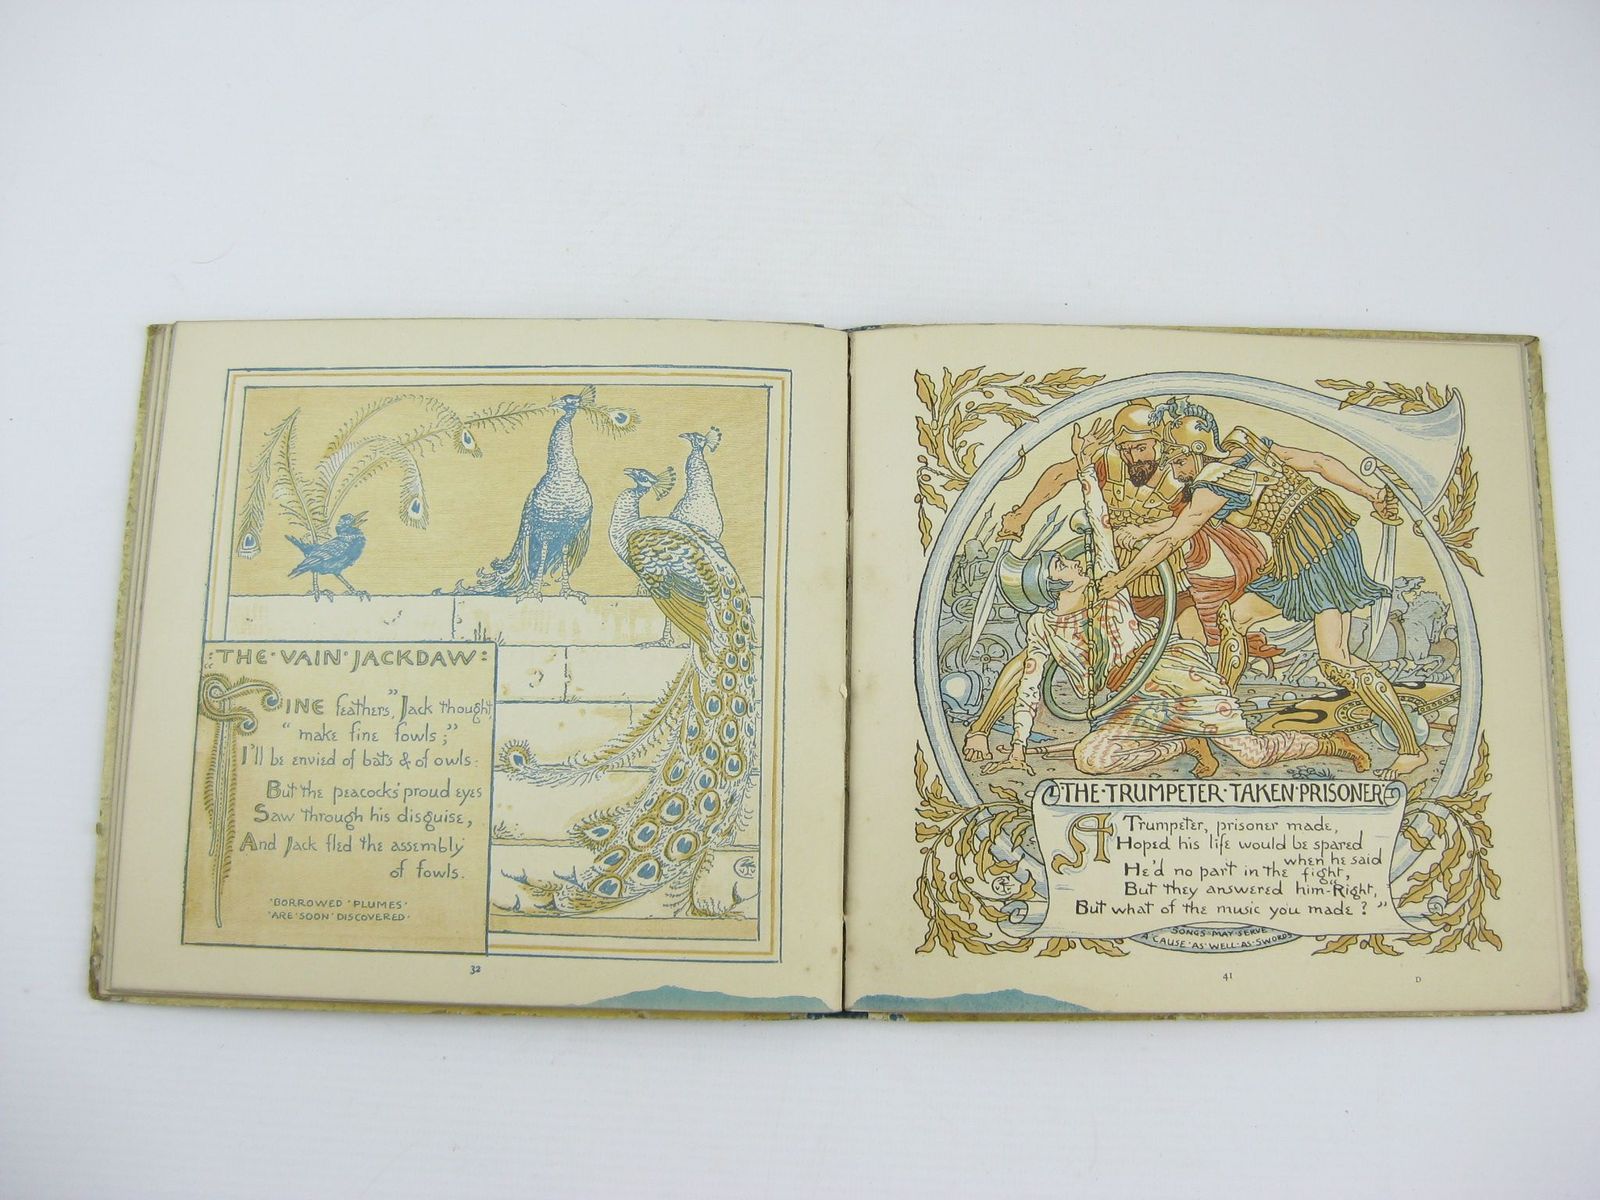 "THE·VAIN·JACKDAW:
FINE feathers," Jack thought,
"make fine fowls;"
I'll be envied of bats & of owls:
But the peacocks' proud eyes
Saw through his disguise,
And Jack fled the assembly
of fowls.
·BORROWED·PLUMES·
·ARE·SOON·DISCOVERED·
32
THE·TRUMPETER·TAKEN·PRISONER
A Trumpeter, prisoner made,
Hoped his life would be spared
when he said
He'd no part in the fight,
But they answered him-"Right,
But what of the music you made?"
SONGS·MAY·SERVE
A·CAUSE·AS·WELL·AS·SWORDS
41
D